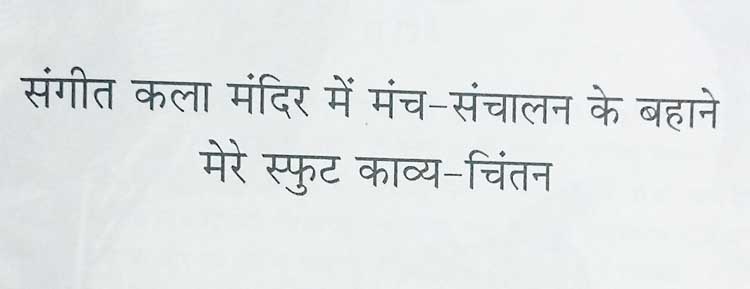 संगीत कला मंदिर में मंच-संचालन के बहाने
मेरे स्फुट काव्य-चिंतन